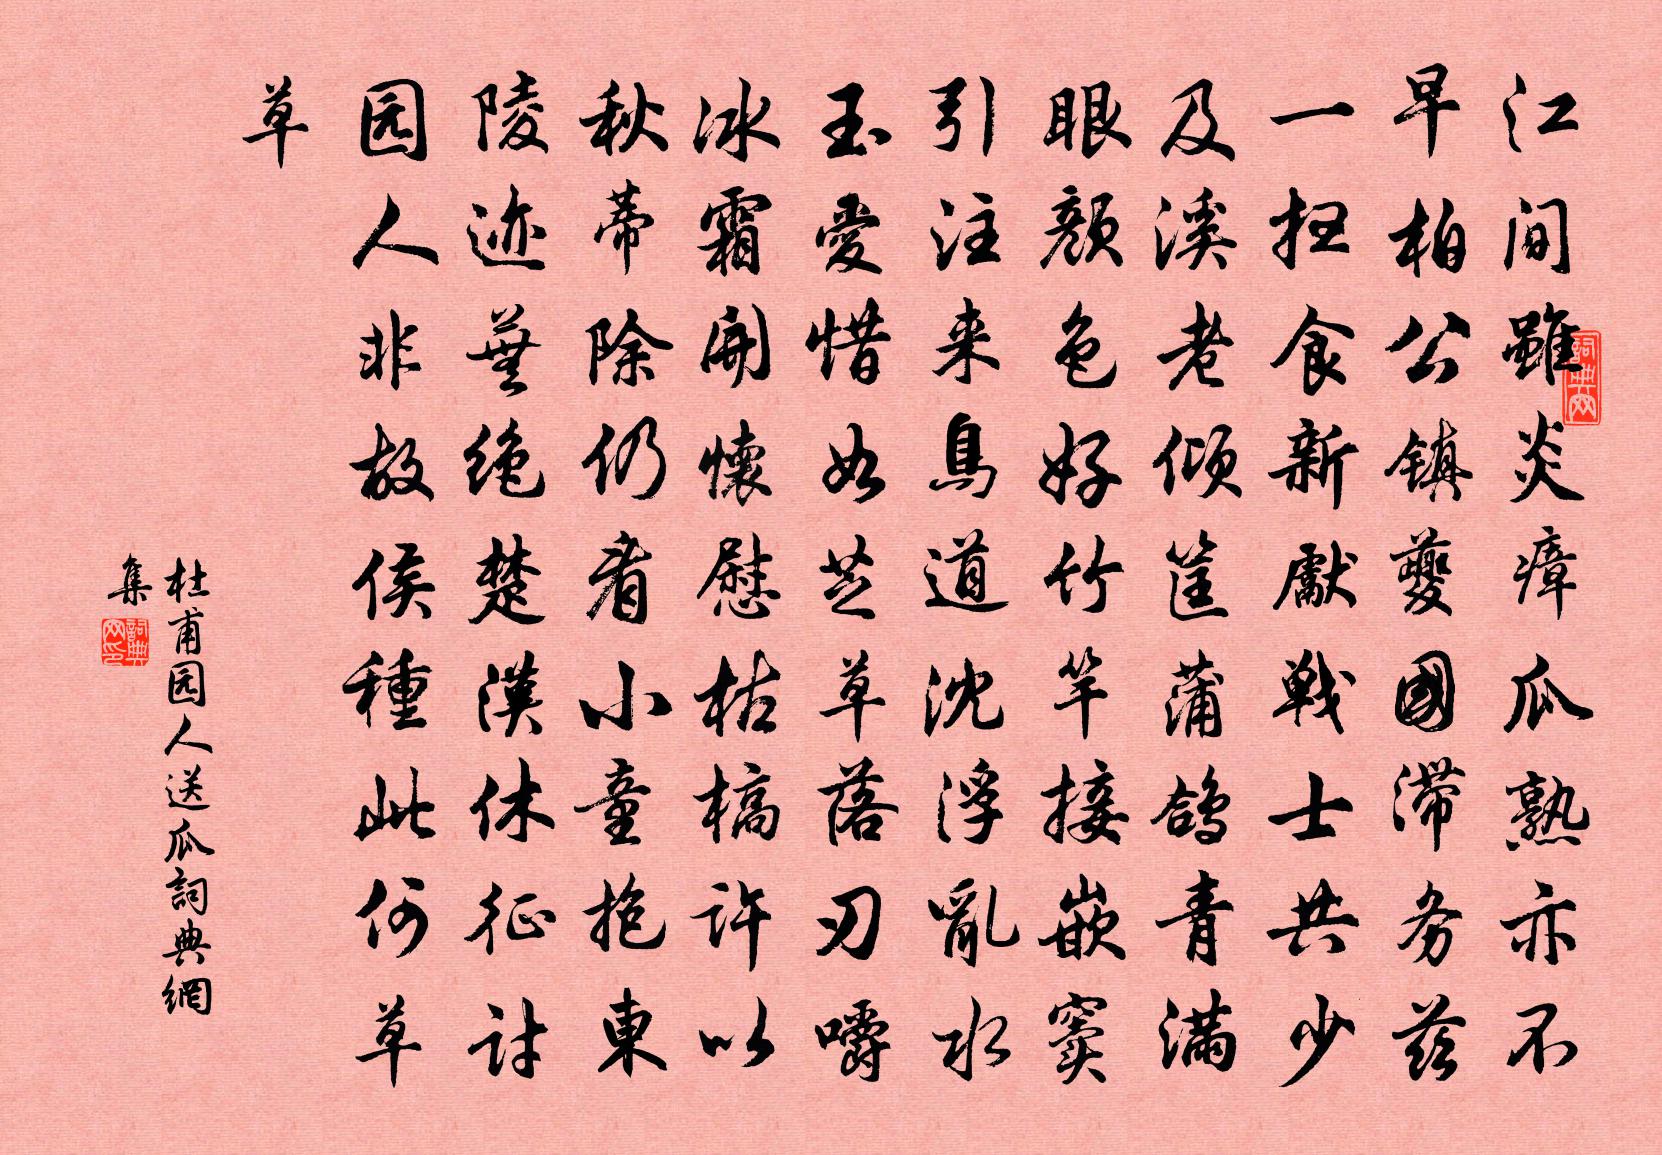 江间雖炎瘴瓜熟亦不
早柏公镇夔國滞务兹
一扫食新獻戦士共少
及溪老倾筐蒲鸽青满
眼颜色好竹竿接嵌窦
引注来鳥道沈浮亂水
玉愛惜如芝草落刃嚼
冰霜開懷慰枯槁许以
秋蒂除仍看小童抱東
陵迹蕪绝楚漢休征討
园人非故侯種此何草
草
杜甫园人送瓜詞典網
集
詞典网
詞典网印